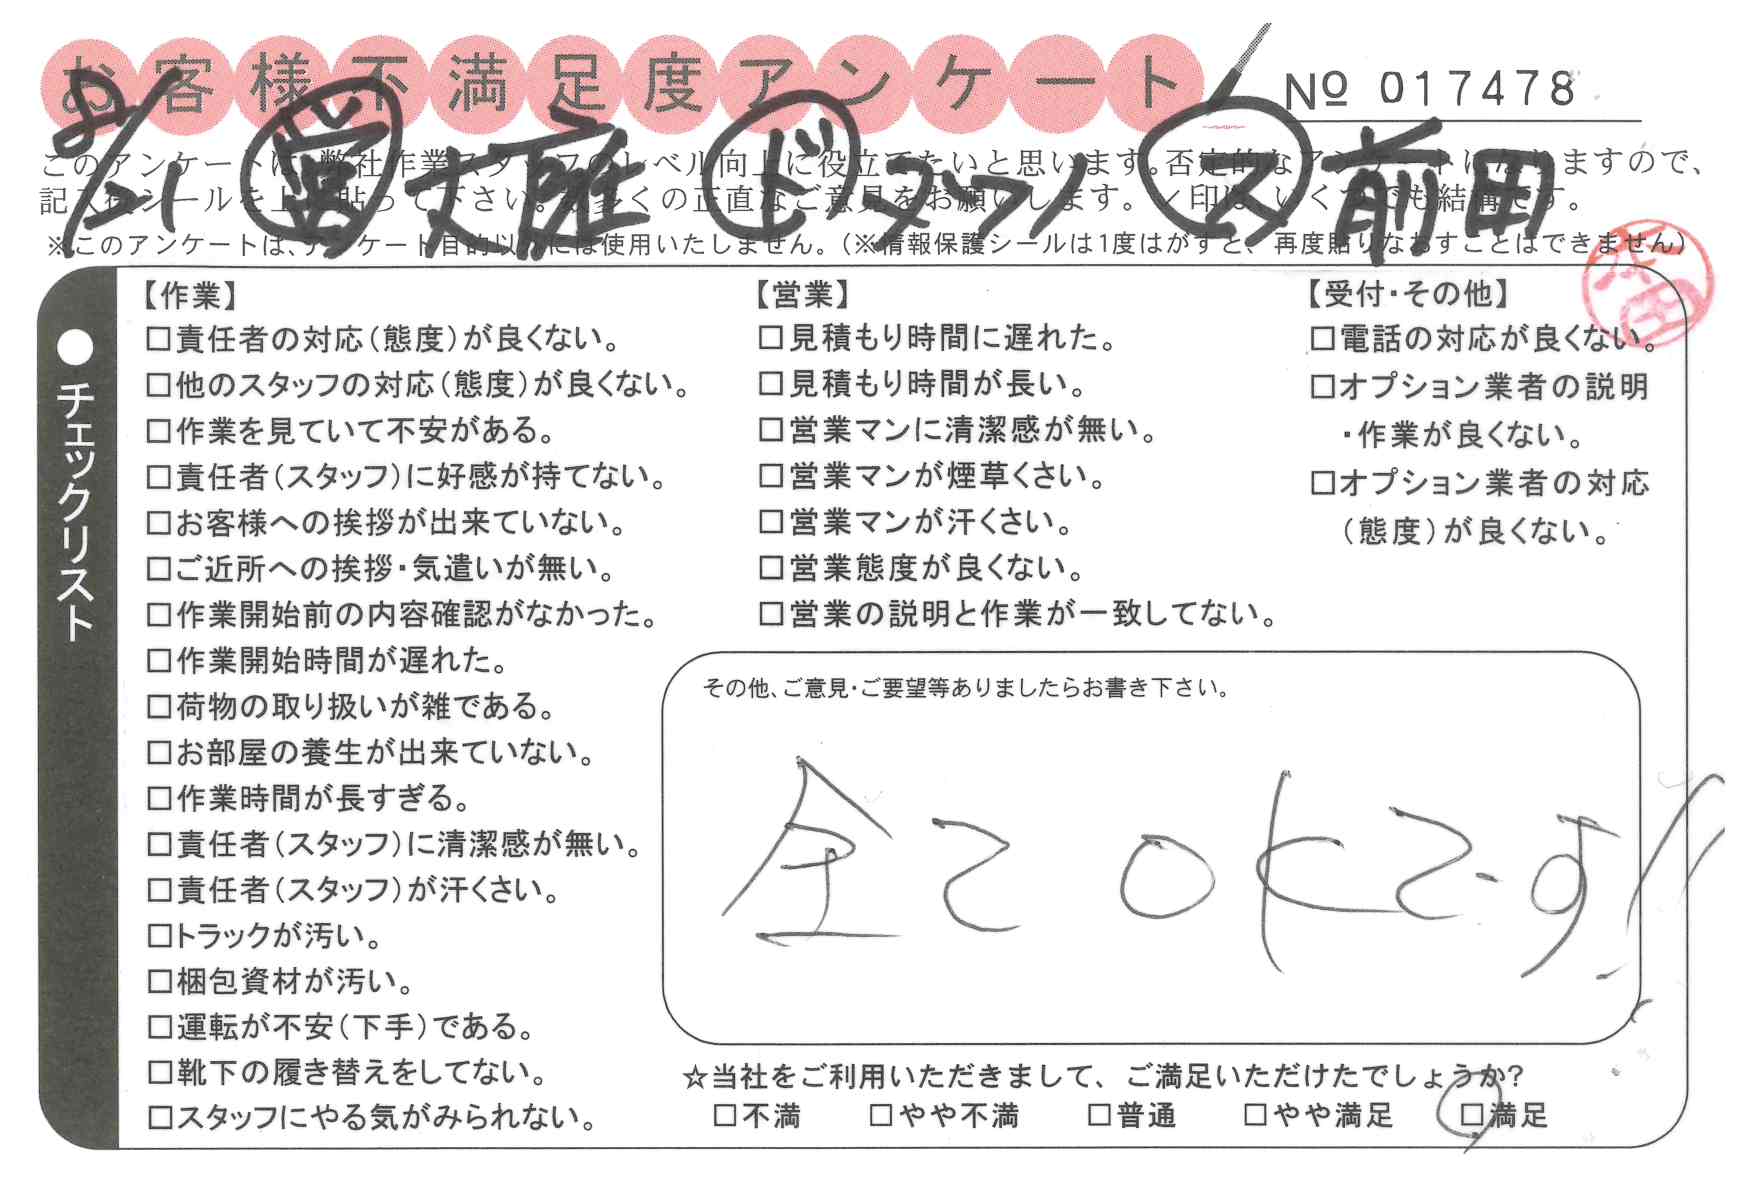 お客様不満足度アンケート
№ 017478
営 大庭 ド ス 前田
このアンケートは、弊社作業スタッフのレベル向上に役立てたいと思います。否定的なアンケートになりますので、
記入後シールを上に貼って下さい。数多くの正直なご意見をお願いします。✓印は、いくつでも結構です。
※このアンケートは、アンケート目的以外には使用いたしません。(※情報保護シールは1度はがすと、再度貼りなおすことはできません)
●チェックリスト
【作業】
□責任者の対応(態度)が良くない。
□他のスタッフの対応(態度)が良くない。
□作業を見ていて不安がある。
□責任者(スタッフ)に好感が持てない。
□お客様への挨拶が出来ていない。
□ご近所への挨拶・気遣いが無い。
□作業開始前の内容確認がなかった。
□作業開始時間が遅れた。
□荷物の取り扱いが雑である。
□お部屋の養生が出来ていない。
□作業時間が長すぎる。
□責任者(スタッフ)に清潔感が無い。
□責任者(スタッフ)が汗くさい。
□トラックが汚い。
□梱包資材が汚い。
□運転が不安(下手)である。
□靴下の履き替えをしてない。
□スタッフにやる気がみられない。
【営業】
□見積もり時間に遅れた。
□見積もり時間が長い。
□営業マンに清潔感が無い。
□営業マンが煙草くさい。
□営業マンが汗くさい。
□営業態度が良くない。
□営業の説明と作業が一致してない。
【受付・その他】
□電話の対応が良くない。
□オプション業者の説明
・作業が良くない。
□オプション業者の対応
(態度)が良くない。
その他、ご意見・ご要望等ありましたらお書き下さい。
全てOKです!!
☆当社をご利用いただきまして、ご満足いただけたでしょうか?
□不満 □やや不満 □普通 □やや満足 □満足